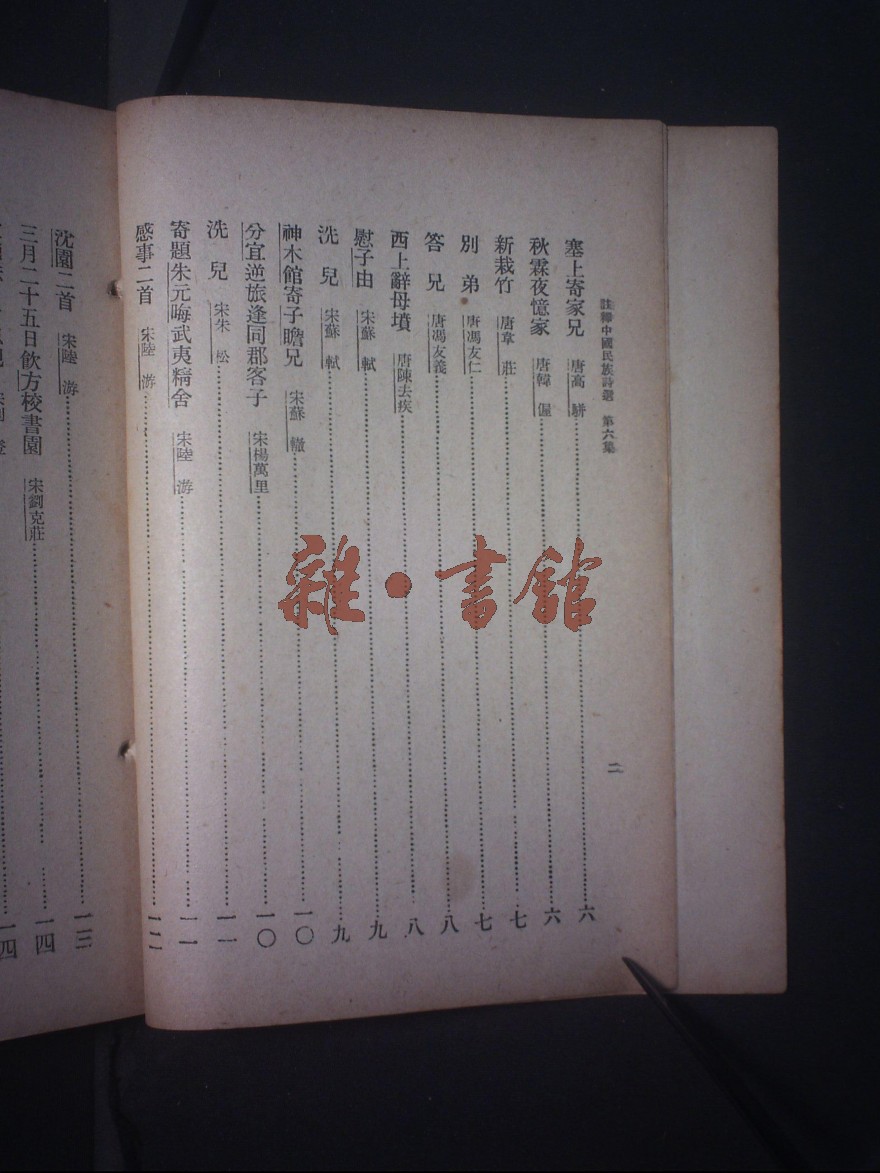 註釋中國民族詩選 第六集
二
塞上寄家兄 唐高駢 六
秋霖夜憶家 唐韓偓 六
新栽竹 唐韋莊 七
別弟 唐馮友仁 七
答兄 唐馮友義 八
西上辭母墳 唐陳去疾 八
慰子由 宋蘇軾 九
洗兒 宋蘇軾 九
神木館寄子瞻兄 宋蘇轍 一〇
分宜逆旅逢同郡客子 宋楊萬里 一〇
洗兒 宋朱松 一一
寄題朱元晦武夷精舍 宋陸游 一一
感事二首 宋陸游 一二
沈園二首 宋陸游 一三
三月二十五日飲方校書園 宋劉克莊 一四
一四
雜·書館